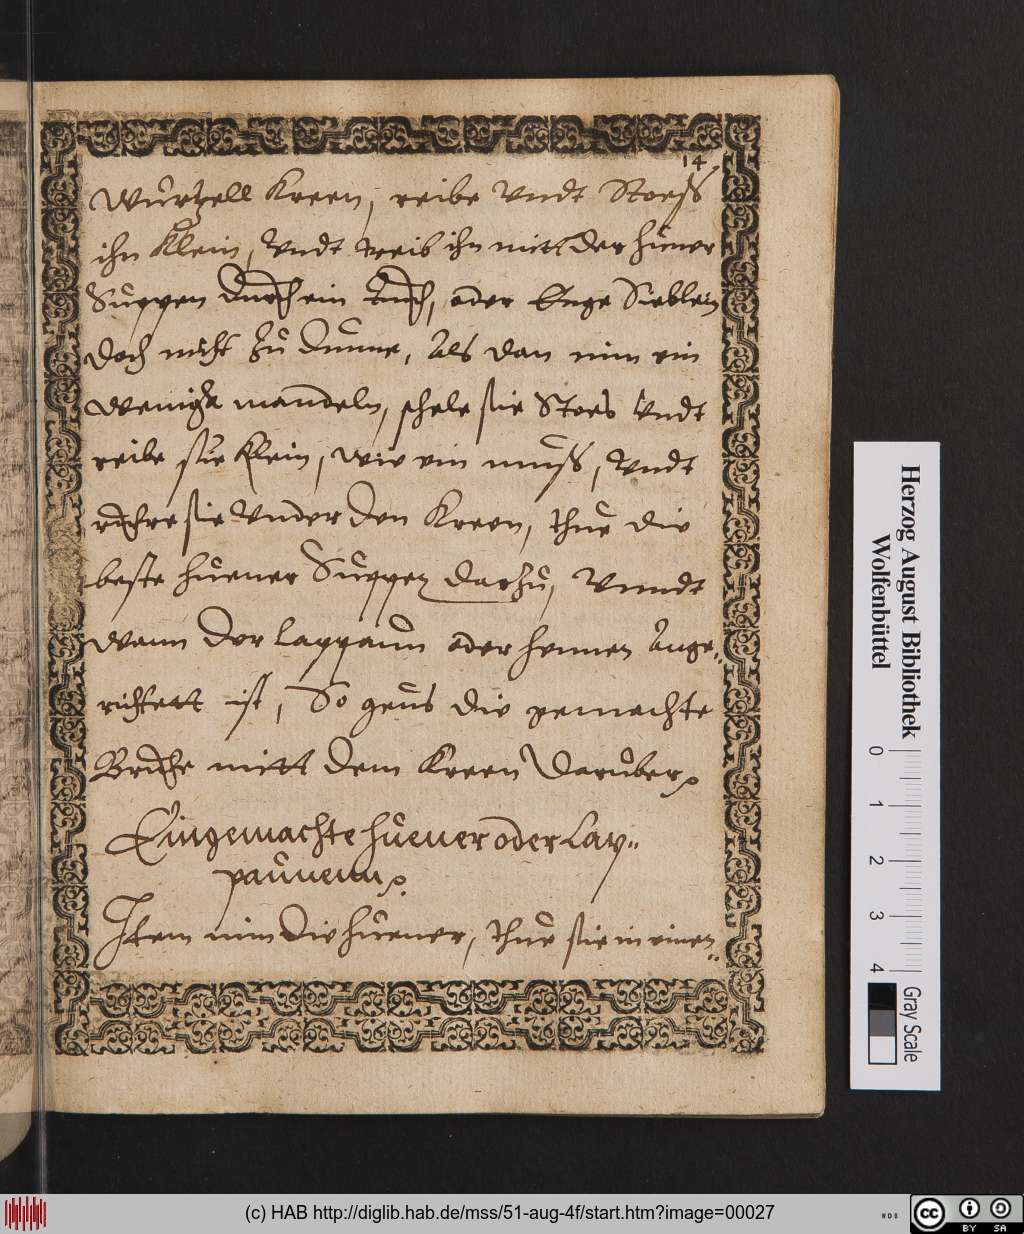 14
Wurtzell Kreen, reibe Vndt Stoess
ihn Klein, Vndt treib ihn mitt der hüner
Suppen durch ein tuch, oder Enge Sieblen
doch nicht zu dunne, Als dan nim ein
wenigk mandeln, schele sie Stoes Vndt
reibe sie klein, wie ein muss, Vndt
ruhre sie Vnder den Kreen, thue die
beste huener Suppen darzu, Vnndt
wann der Cappaun oder hennen Ange„
richtett ist, So geus die gemachte
Bruhe mitt dem Kreen daruber
Eingemachte huener oder Cap„
paunenn
Item nim die huener, thue sie in einen„
Herzog August Bibliothek
Wolfenbüttel
0 1 2 3 4
Gray Scale
(c) HAB http://diglib.hab.de/mss/51-aug-4f/start.htm?image=00027
WDB
cc BY SA